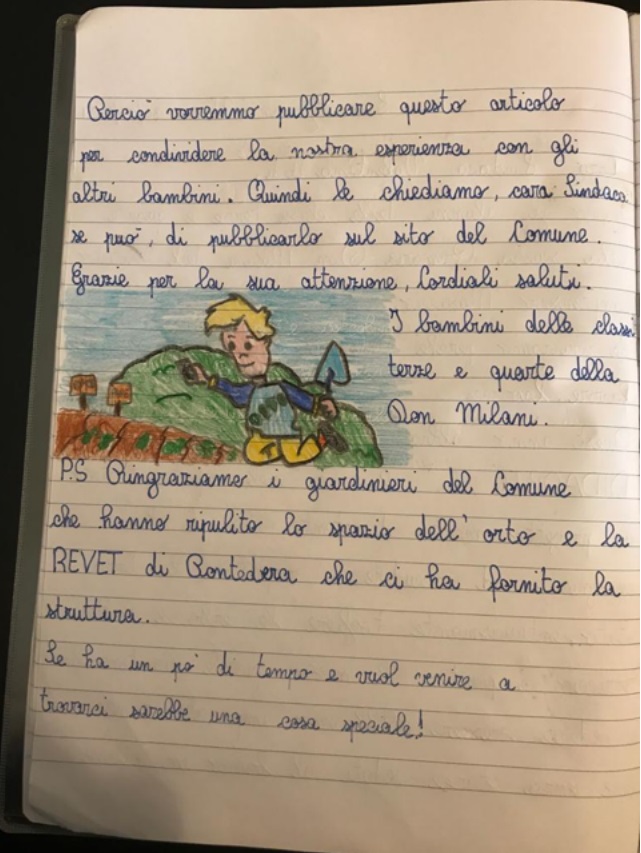 Perciò vorremmo pubblicare questo articolo
per condividere la nostra esperienza con gli
altri bambini. Quindi le chiediamo, cara Sindaca
se può, di pubblicarlo sul sito del Comune.
Grazie per la sua attenzione, Cordiali saluti.
I bambini delle classi
terze e quarte della
Don Milani.
P.S Ringraziamo i giardinieri del Comune
che hanno ripulito lo spazio dell'orto e la
REVET di Pontedera che ci ha fornito la
struttura.
Se ha un pò di tempo e vuol venire a
trovarci sarebbe una cosa speciale!